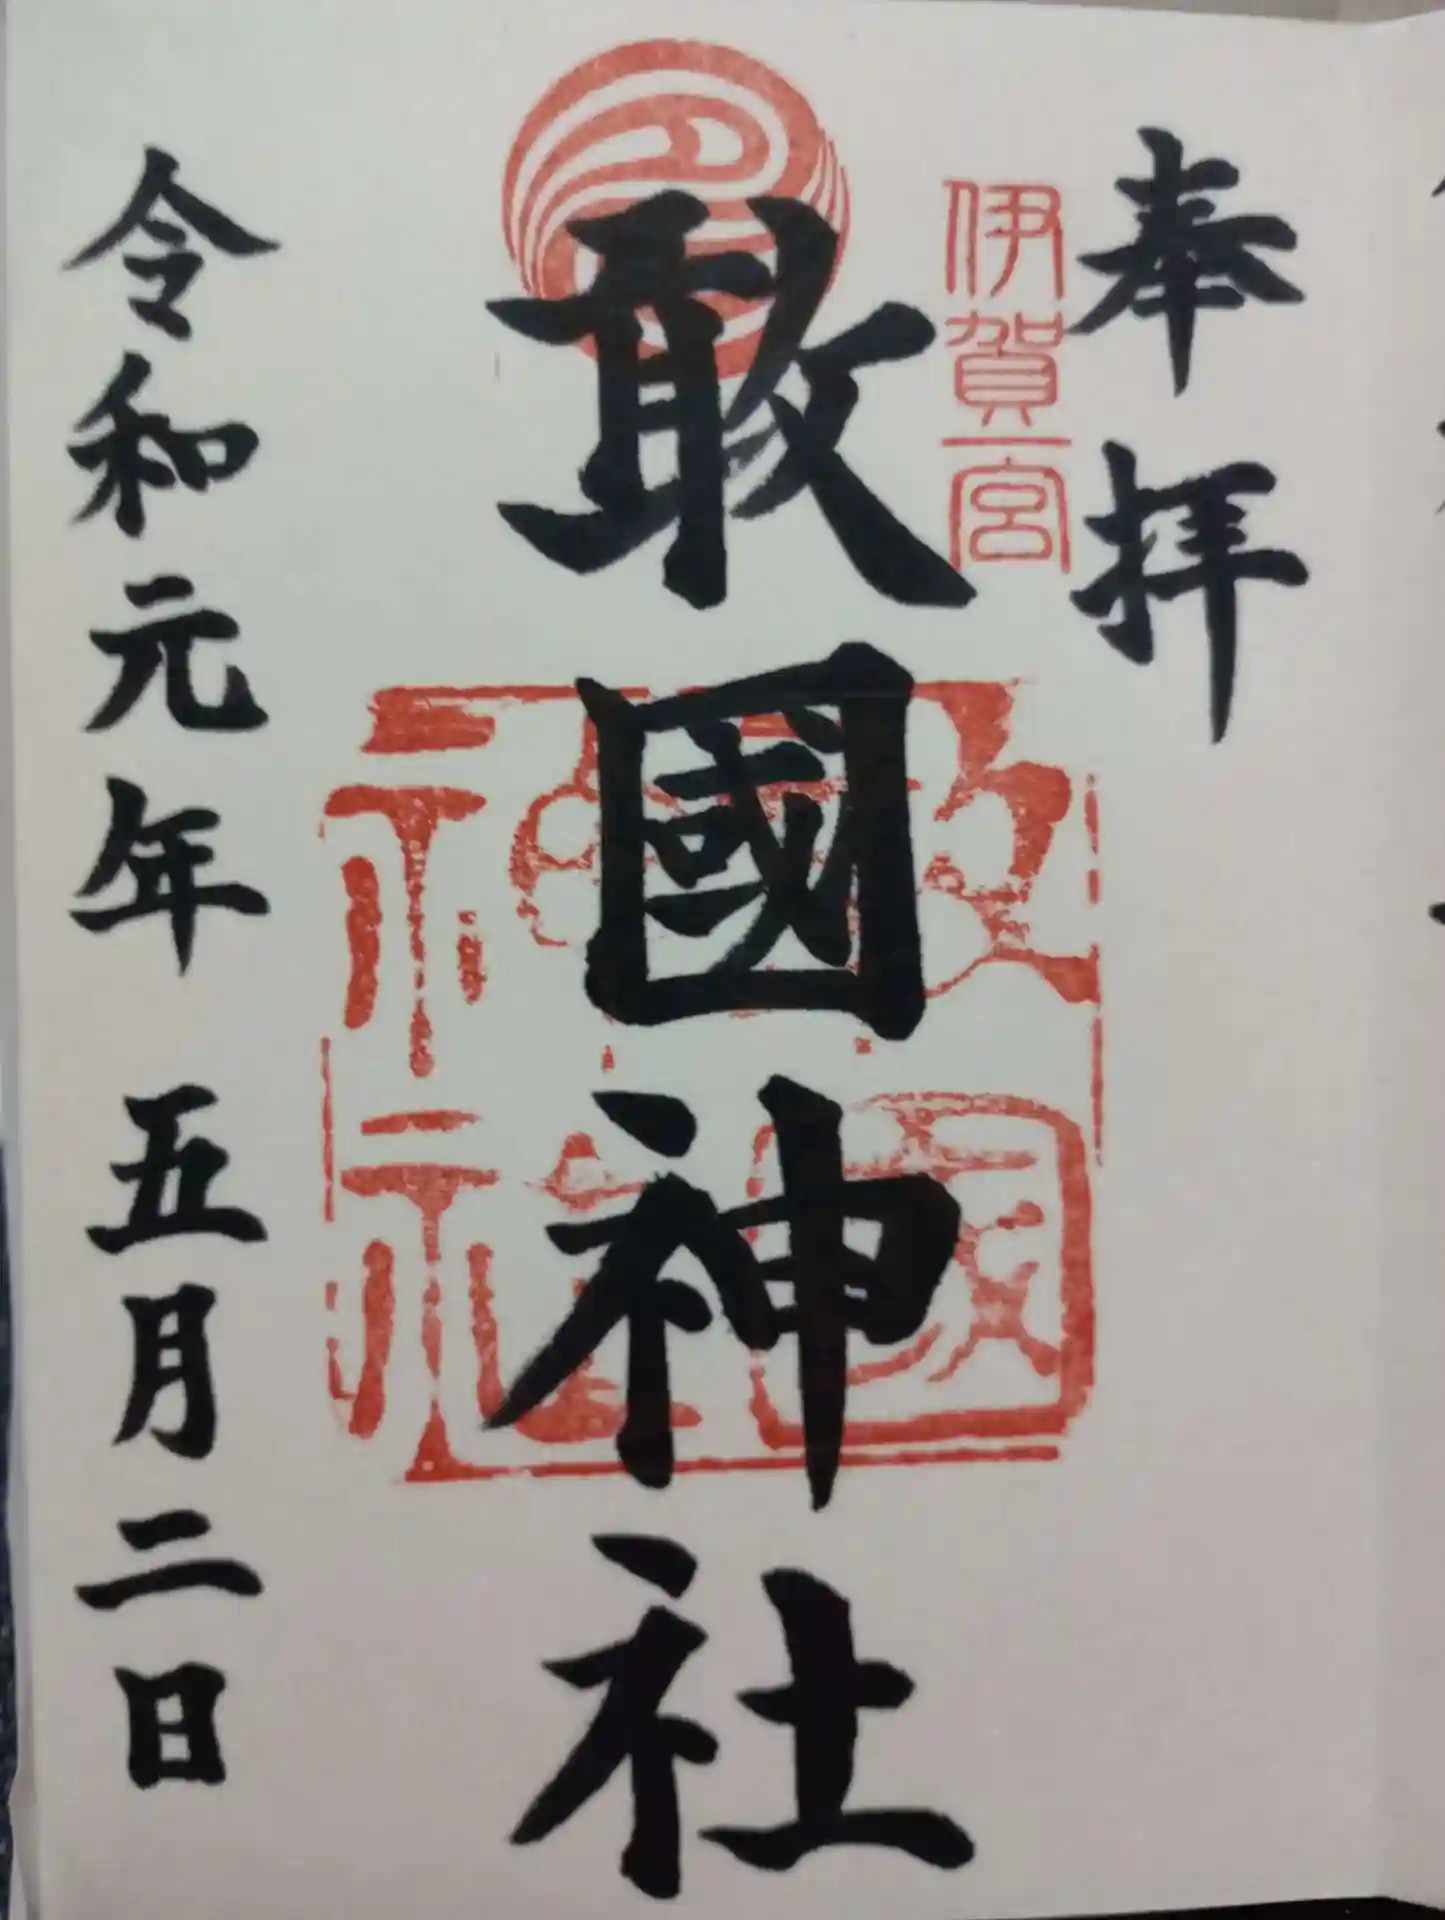 奉拝
伊賀一宮
敢國神社
敢國神社
令和元年 五月二日